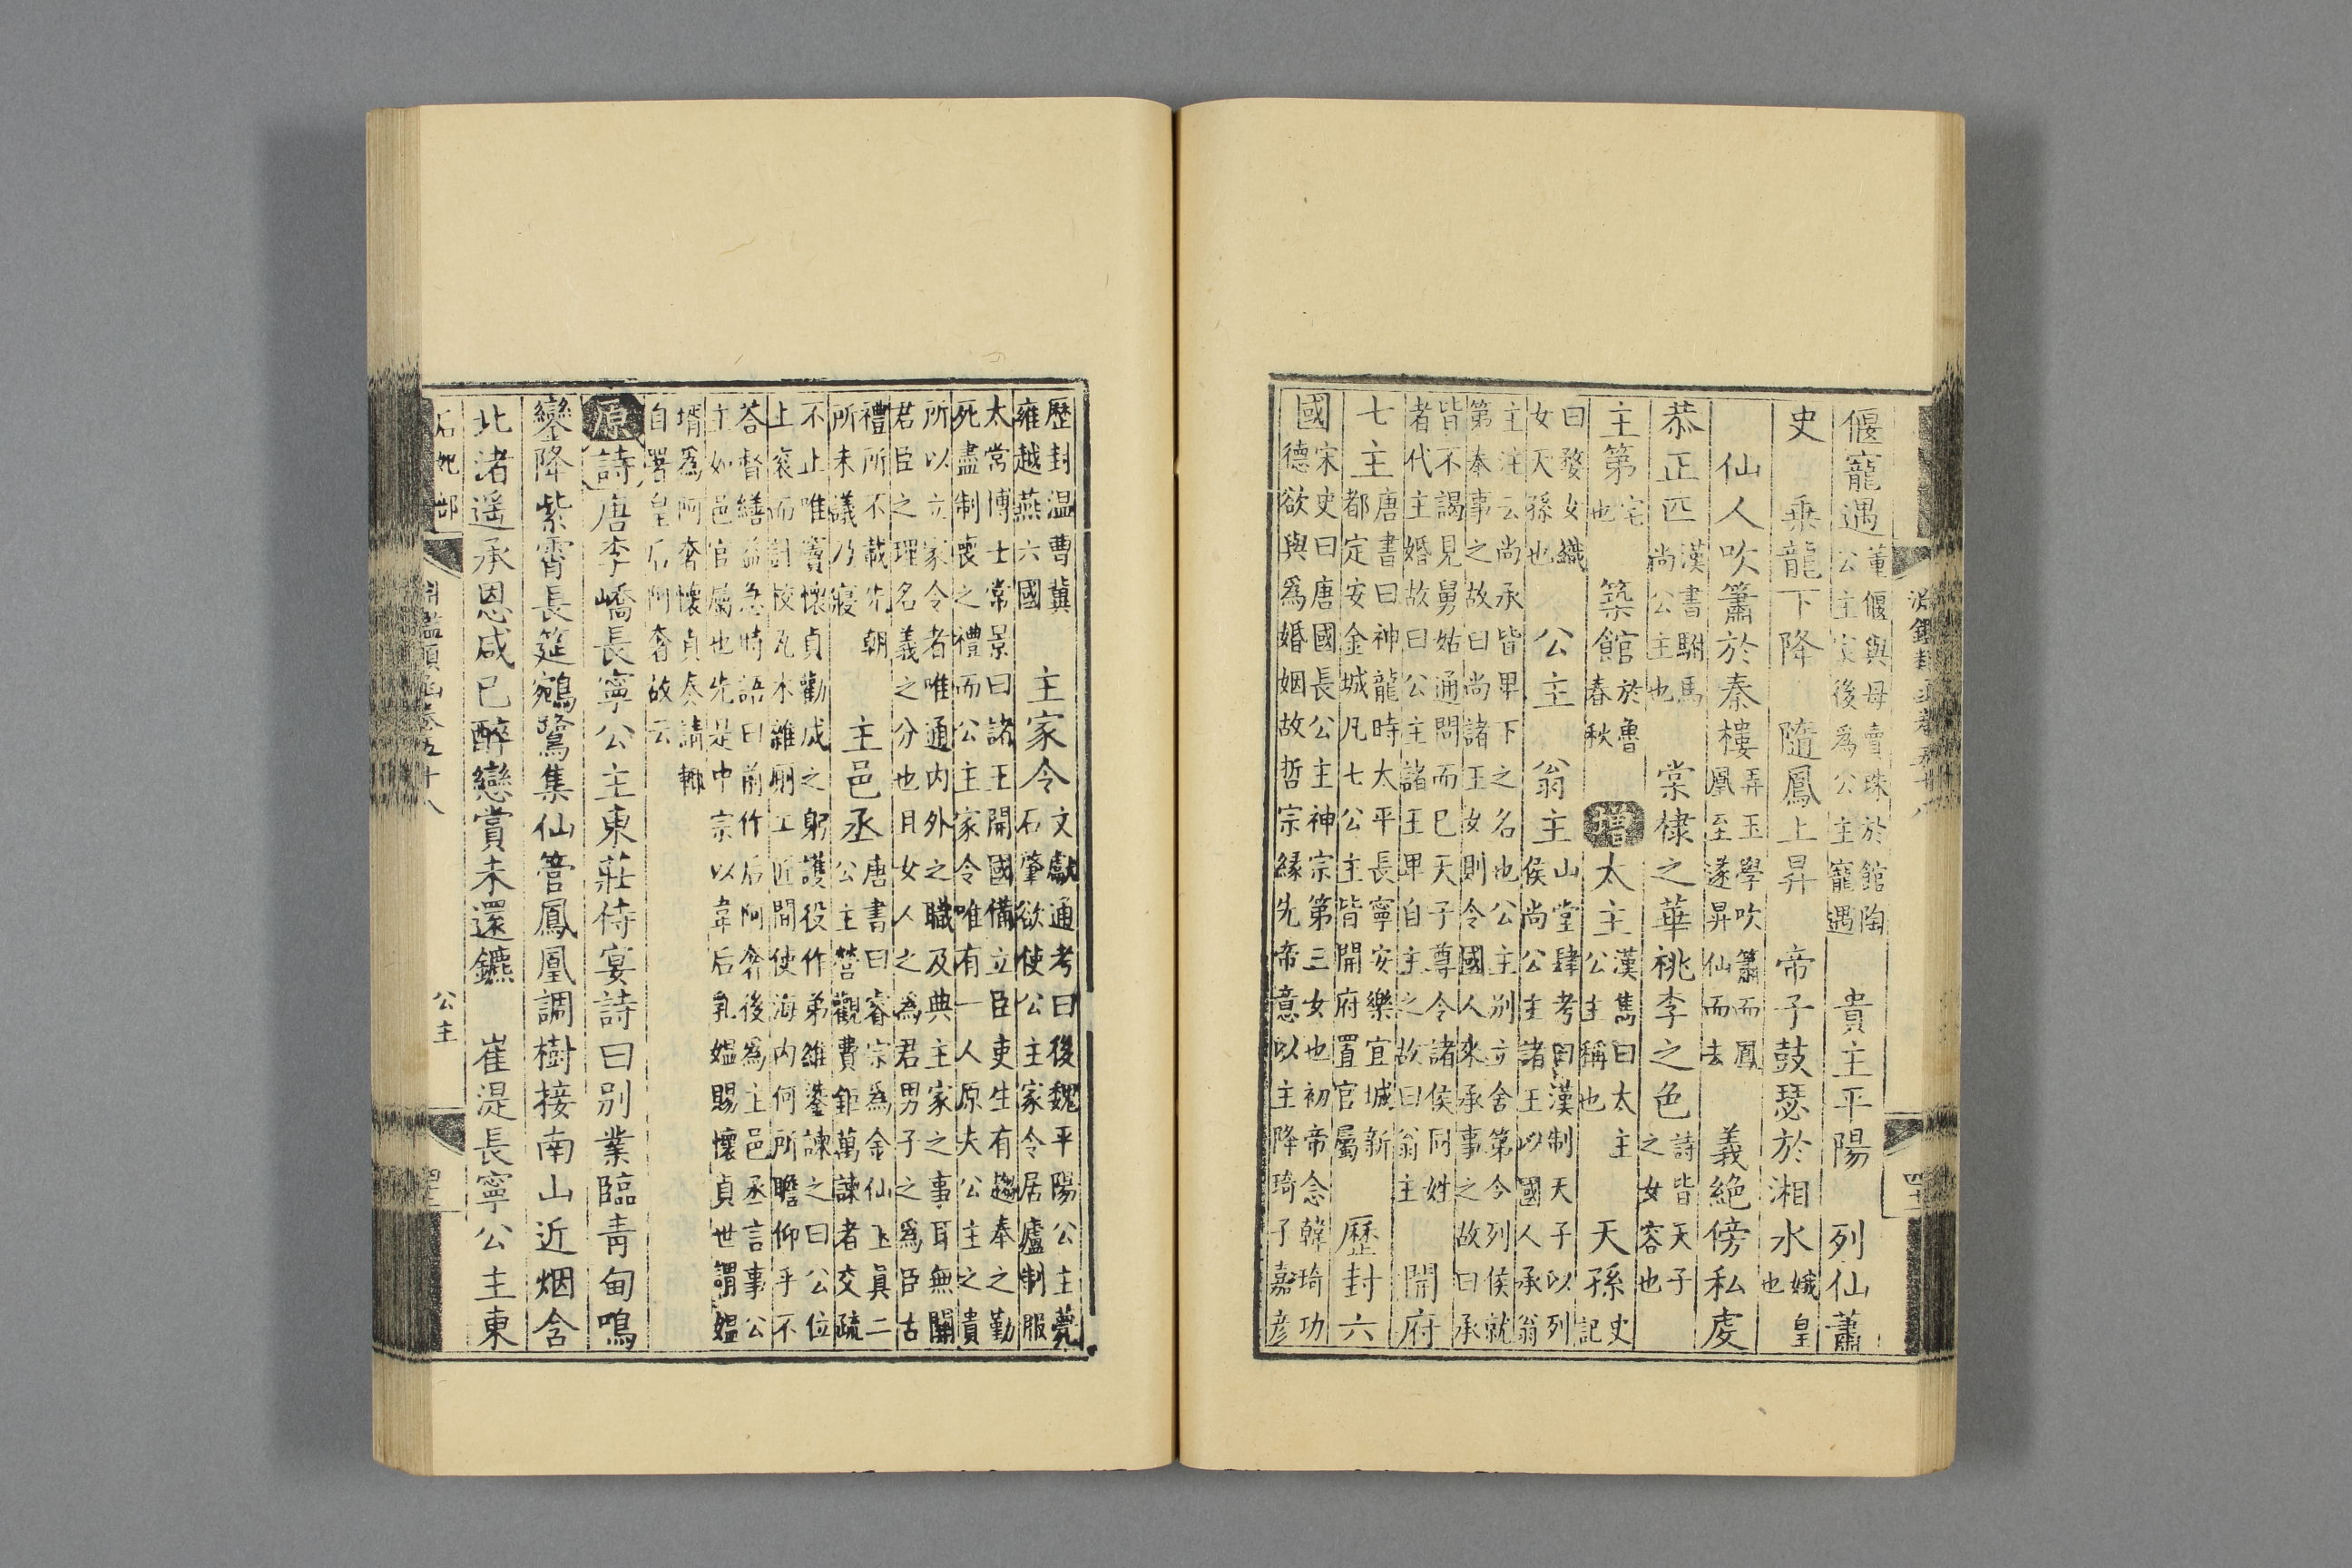 偃寵遇董偃與母賣珠於館陶公主家後爲公主寵遇　貴主平陽　列仙蕭
史　乗龍下降　隨鳳上昇　帝子鼓瑟於湘水娥皇也
仙人吹簫於秦樓弄玉學吹簫而鳳凰至遂昇仙而去　義絶傍私處
恭正匹漢書駙馬尚公主也　棠棣之華桃李之色詩皆天子之女容也
主第宅也　築館於魯春秋　增太主漢雋曰太主公主稱也　天孫史記
曰婺女織女天孫也　公主　翁主山堂肆考曰漢制天子以列侯尚公主諸王以國人承翁
主注云尚承皆卑下之名也公主别立舍第令列侯就第奉事之故曰尚諸王女則令國人來承事之故曰承
皆不謁見舅姑通問而已天子尊令諸侯同姓者代主婚故曰公主諸王卑自主之故曰翁主　開府
七主唐書曰神龍時太平長寧安樂宜城新都定安金城凡七公主皆開府置官屬　歴封六
國宋史曰唐國長公主神宗第三女也初帝念韓琦功德欲與爲婚姻故哲宗緣先帝意以主降琦子嘉彦
歴封温曹冀雍越燕六國　主家令文獻通考曰後魏平陽公主薨石肇欲使公主家令居廬制服
太常博士常景曰諸王開國備立臣吏生有趨奉之勤死盡制喪之禮而公主家令唯有一人原夫公主之貴
所以立家令者唯通内外之職及典主家之事耳無關君臣之理名義之分也且女人之爲君男子之爲臣古
禮所不載先朝所未議乃寢　主邑丞唐書曰睿宗爲金仙玉真二公主營觀費鉅萬諫者交疏
不止唯竇懷貞勸成之躬護役作弟維鍌諫之曰公位上衮而討校瓦木雜厠工匠間使海内何所瞻仰乎不
荅督繕益急時語曰前作后阿奢後爲主邑丞言事公主如邑官屬也先是中宗以韋后乳媪賜懷貞世謂媪
壻爲阿奢懷貞奏請輙自署皇后阿奢故云
原詩唐李嶠長寧公主東莊侍宴詩曰别業臨青甸鳴
鑾降紫霄長筵鵷鷺集仙管鳳凰調樹接南山近烟含
北渚遥承恩咸已醉戀賞未還鑣　崔湜長寧公主東
后妃部
淵鑑類函卷五十八
公主